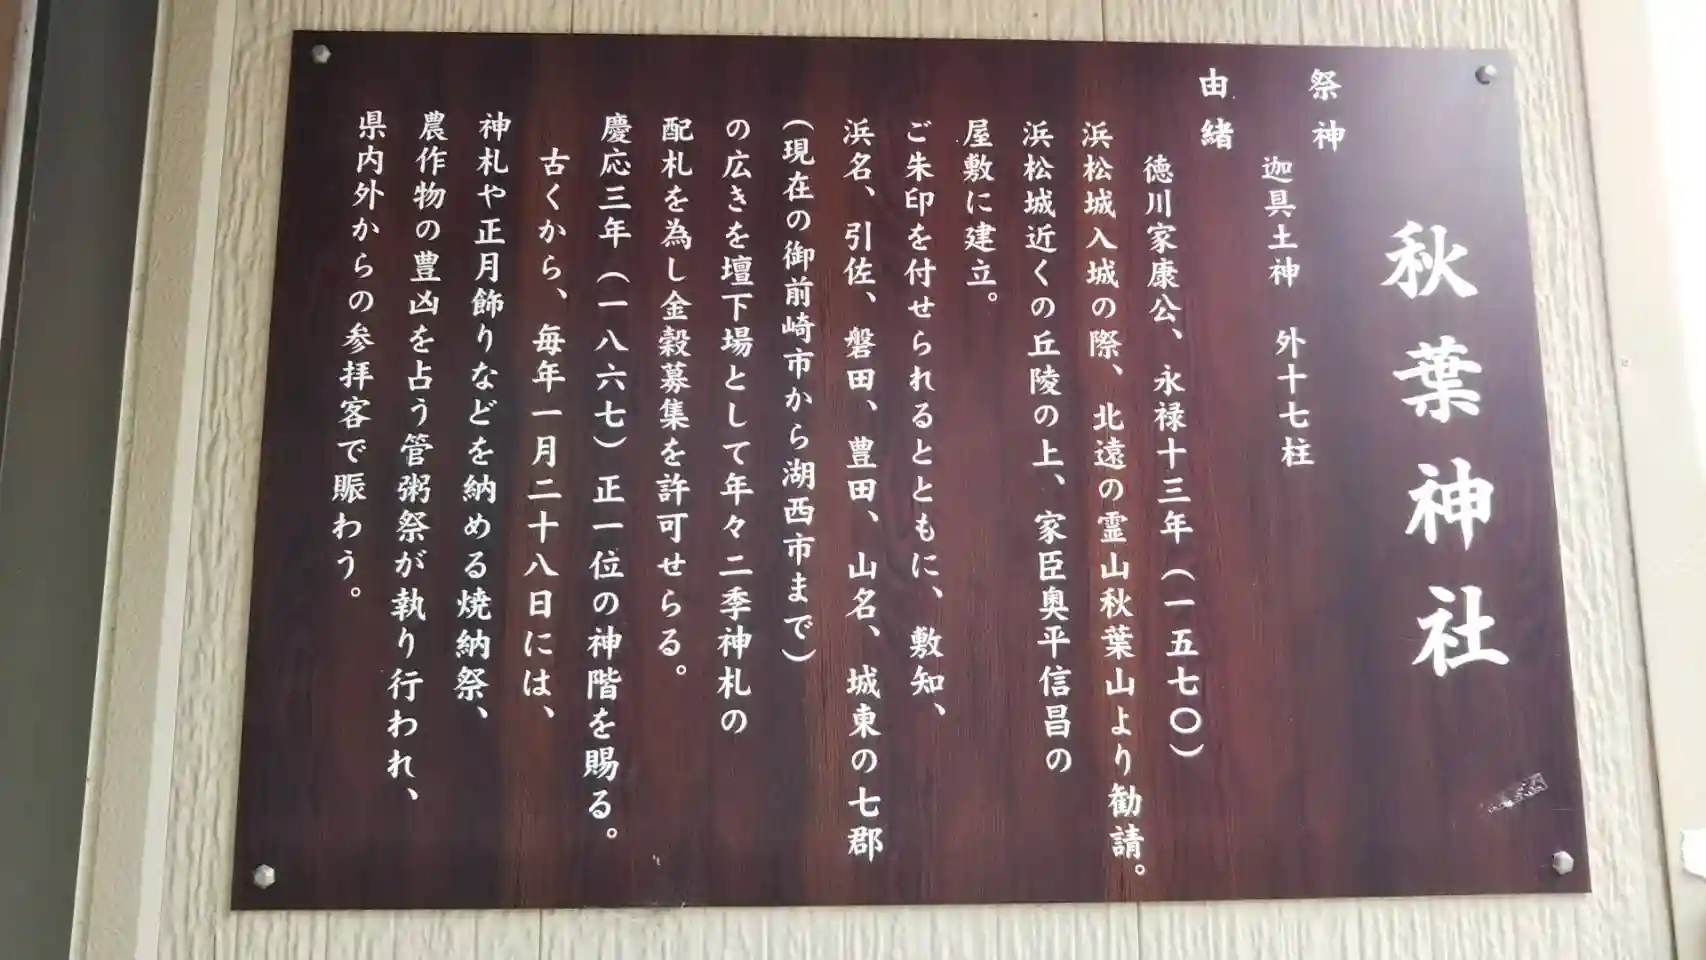 秋葉神社
祭神
迦具土神　外十七柱
由緒
徳川家康公、永禄十三年（一五七〇）
浜松城入城の際、北遠の霊山秋葉山より勧請。
浜松城近くの丘陵の上、家臣奥平信昌の
屋敷に建立。
ご朱印を付せられるとともに、敷知、
浜名、引佐、磐田、豊田、山名、城東の七郡
（現在の御前崎市から湖西市まで）
の広きを壇下場として年々二季神札の
配札を為し金穀募集を許可せらる。
慶応三年（一八六七）正一位の神階を賜る。
古くから、毎年一月二十八日には、
神札や正月飾りなどを納める焼納祭、
農作物の豊凶を占う管粥祭が執り行われ、
県内外からの参拝客で賑わう。